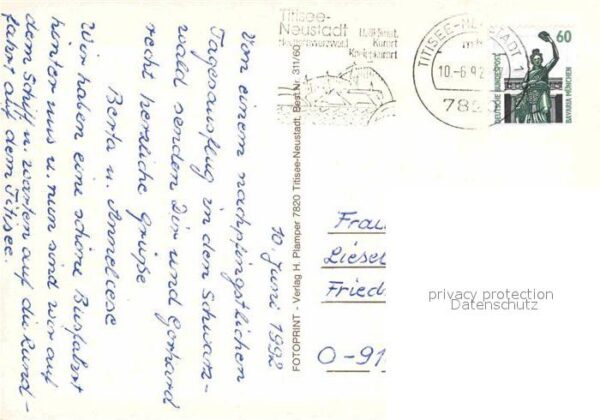 10. Juni 1992
Von einem nachpfingstlichen
Tagesausflug in den Schwarz-
wald senden Dir und Gerhard
recht herzliche Grüße
Berta u. Anneliese
Wir haben eine schöne Busfahrt
hinter uns u. nun sind wir auf
dem Schiff u. warten auf die Rund-
fahrt auf dem Titisee.
FOTOPRINT - Verlag H. Plamper 7820 Titisee-Neustadt, Best.Nr. 311/60
Titisee-
Neustadt
Hochschwarzwald
Heilklimat.
Kurort
Kneippkurort
TITISEE-NEUSTADT 1
mb
10.-6.92
782
60
DEUTSCHE BUNDESPOST
BAVARIA MÜNCHEN
Frau
Liesel
Fried
O-91
privacy protection
Datenschutz